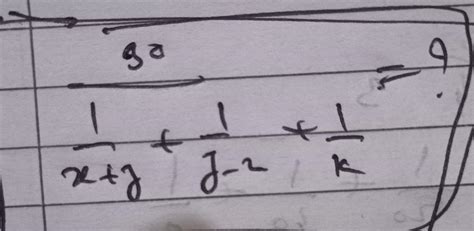 90
= ?
1/(x+y) + 1/(y-2) + 1/k